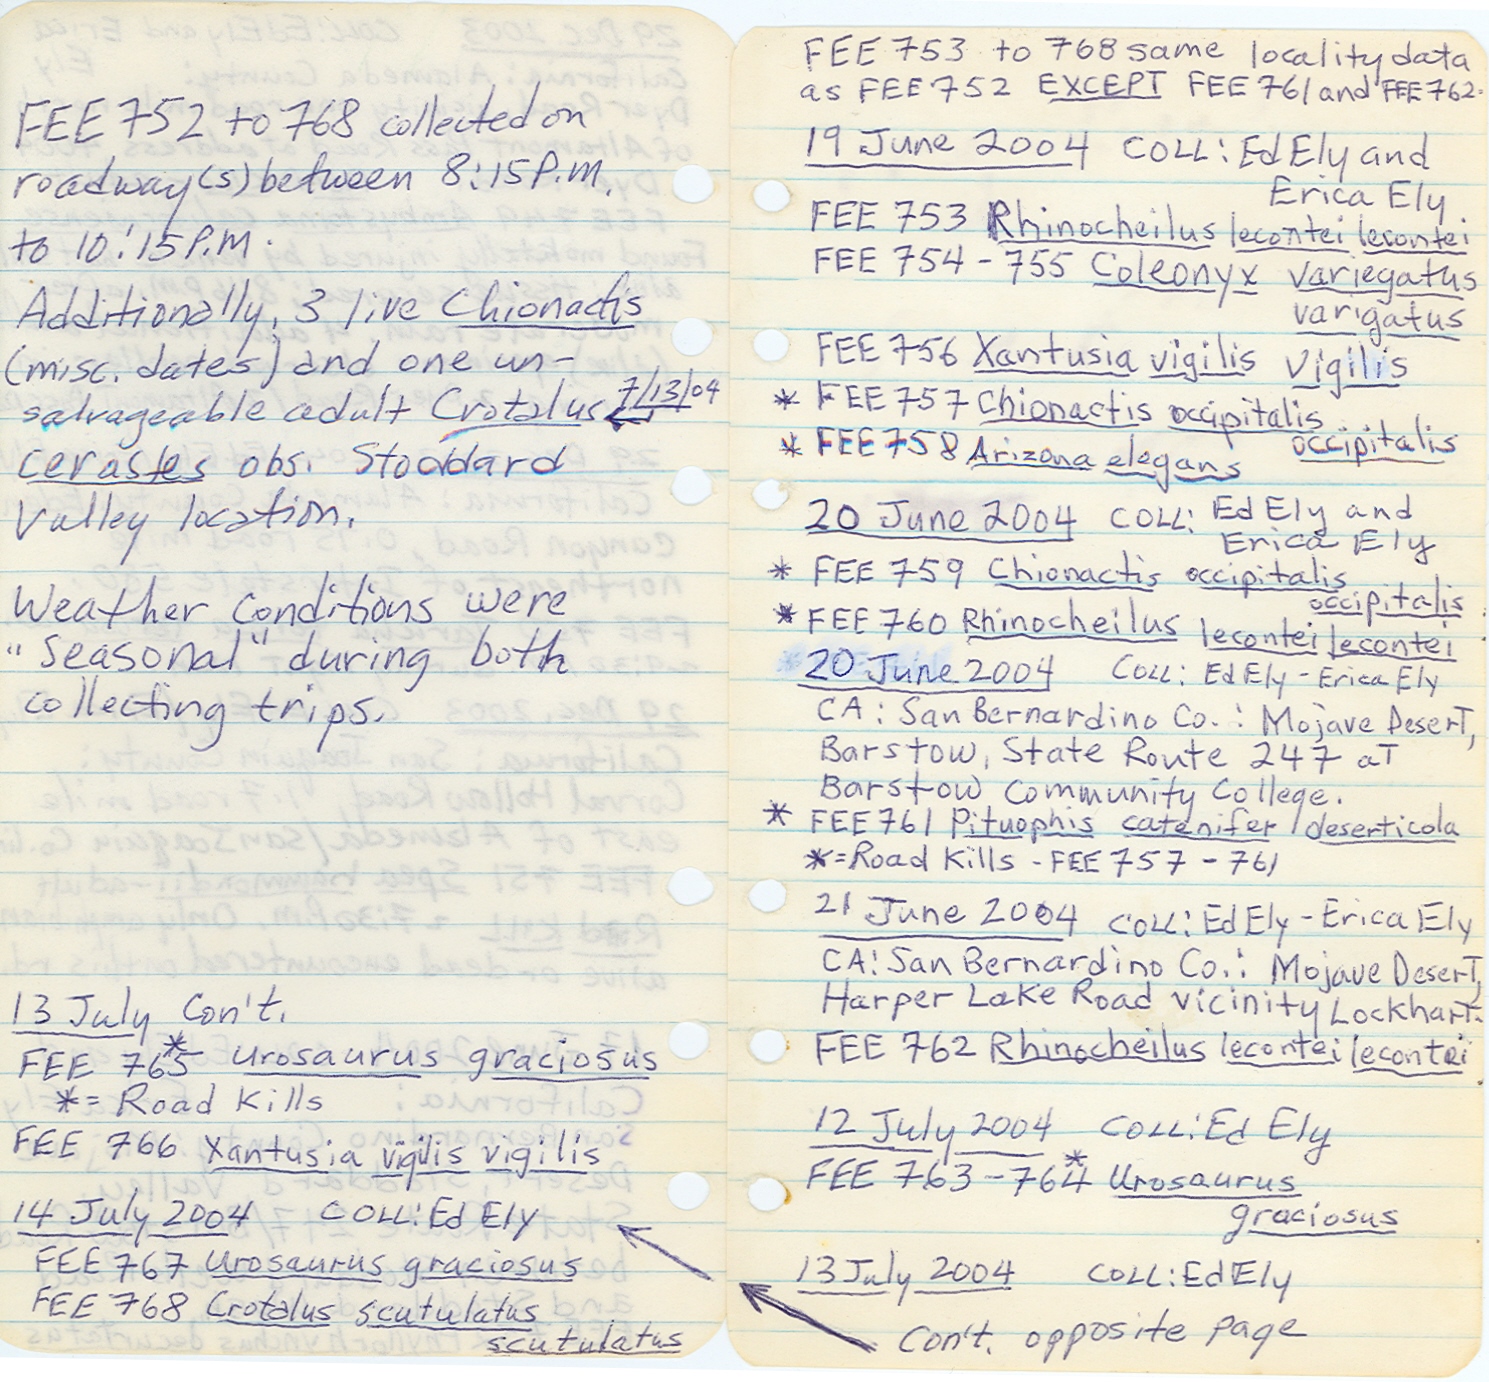 FEE 752 to 768 collected on
roadway(s) between 8:15 P.M.
to 10:15 P.M.
Additionally, 3 live Chionactis
(misc. dates) and one un-
salvageable adult Crotalus 7/13/04
cerastes obs. Stoddard
Valley location.
Weather conditions were
"seasonal" during both
collecting trips.
13 July Con't.
FEE 765* Urosaurus graciosus
*= Road Kills
FEE 766 Xantusia vigilis vigilis
14 July 2004 COLL: Ed Ely
FEE 767 Urosaurus graciosus
FEE 768 Crotalus scutulatus
scutulatus
FEE 753 to 768 same locality data
as FEE 752 EXCEPT FEE 761 and FEE 762.
19 June 2004 COLL: Ed Ely and
Erica Ely
FEE 753 Rhinocheilus lecontei lecontei
FEE 754-755 Coleonyx variegatus
varigatus
FEE 756 Xantusia vigilis vigilis
* FEE 757 Chionactis occipitalis
occipitalis
* FEE 758 Arizona elegans
20 June 2004 COLL: Ed Ely and
Erica Ely
* FEE 759 Chionactis occipitalis
occipitalis
* FEE 760 Rhinocheilus lecontei lecontei
20 June 2004 COLL: Ed Ely - Erica Ely
CA: San Bernardino Co.: Mojave Desert,
Barstow, State Route 247 at
Barstow Community College.
* FEE 761 Pituophis catenifer deserticola
*=Road Kills - FEE 757 - 761
21 June 2004 COLL: Ed Ely - Erica Ely
CA: San Bernardino Co.: Mojave Desert,
Harper Lake Road vicinity Lockhart.
FEE 762 Rhinocheilus lecontei lecontei
12 July 2004 COLL: Ed Ely
FEE 763-764* Urosaurus
graciosus
13 July 2004 COLL: Ed Ely
Con't. opposite page